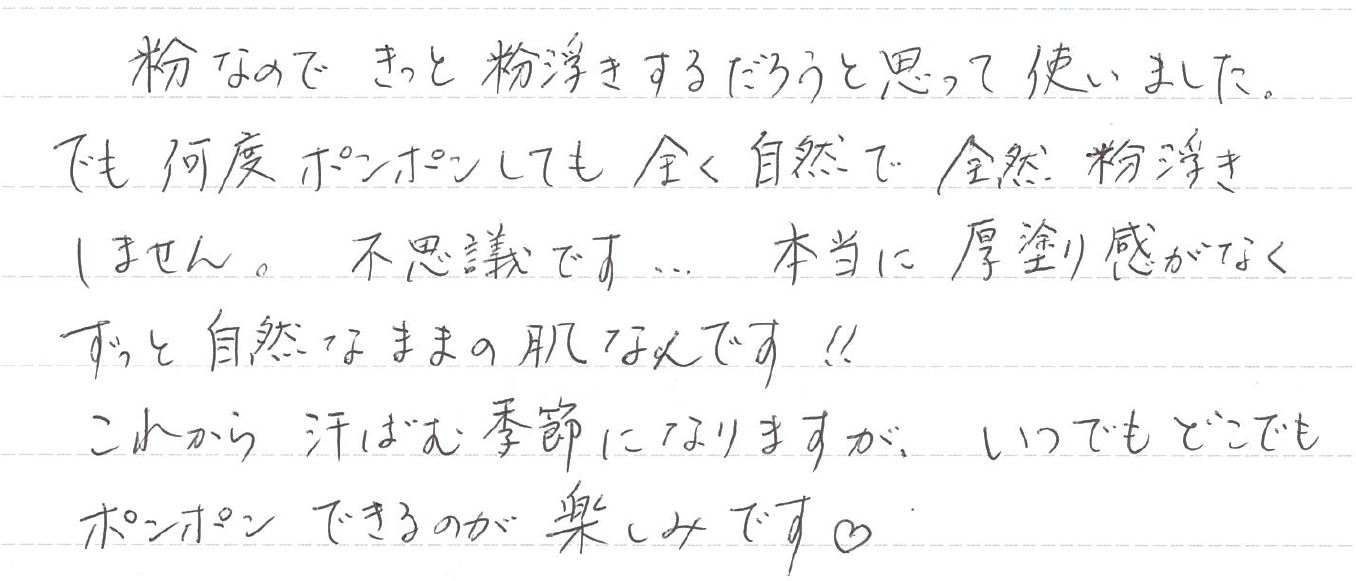 粉なので きっと 粉浮きするだろうと思って 使いました。
でも 何度 ポンポンしても 全く 自然で 全然 粉浮き
しません。 不思議です… 本当に 厚塗り感がなく
ずっと 自然なままの 肌なんです!!
これから 汗ばむ 季節になりますが、 いつでもどこでも
ポンポン できるのが 楽しみです♡